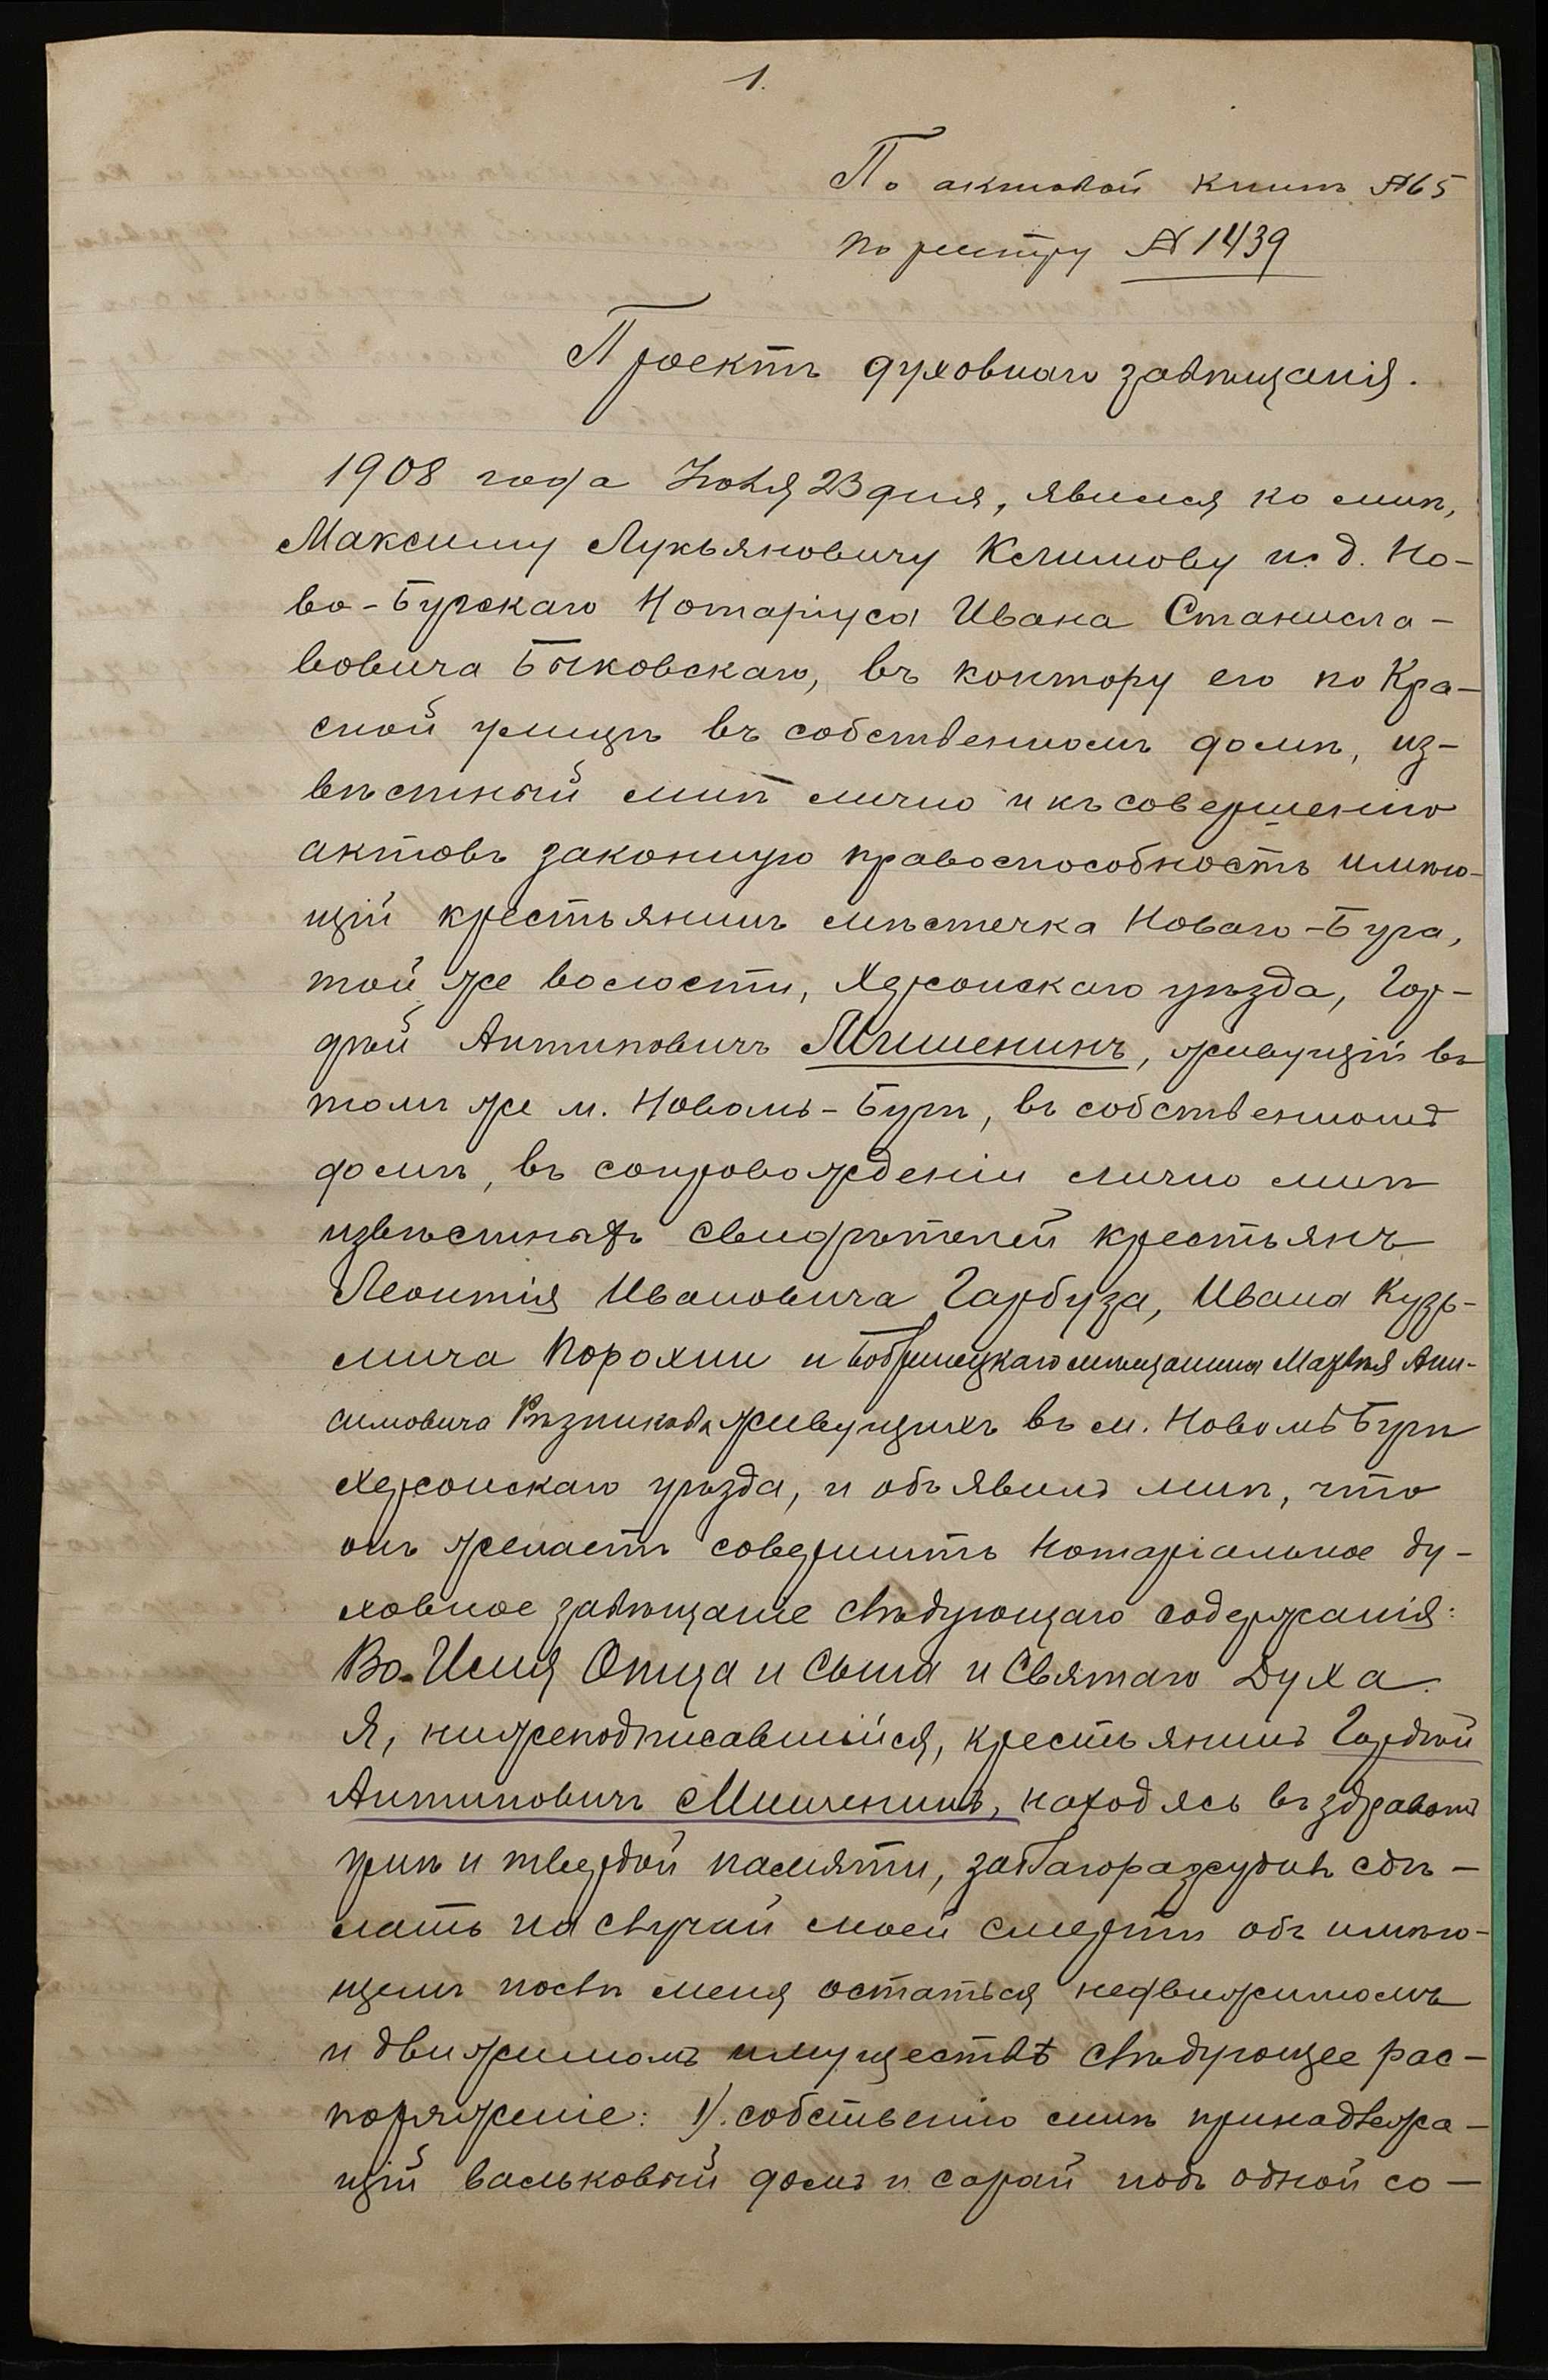 1.
По актовой книгѣ № 65
по реестру № 1439
Проектъ духовнаго завѣщанія.
1908 года Іюля 23 дня, явился ко мнѣ,
Максиму Лукьяновичу Климову и. д. Но-
во-Бугскаго Нотаріуса Ивана Станисла-
вовича Быковскаго, въ контору его по Кра-
сной улицѣ въ собственномъ домѣ, из-
вѣстный мнѣ лично и къ совершенію
актовъ законную правоспособность имѣю-
щій крестьянинъ мѣстечка Новаго-Буга,
той же волости, Херсонскаго уѣзда, Гор-
дѣй Антиповичъ Мишенинъ, живущій въ
томъ же м. Новомъ-Бугѣ, въ собственномъ
домѣ, въ сопровожденіи лично мнѣ
извѣстныхъ свидѣтелей крестьянъ
Леонтія Ивановича Гарбуза, Ивана Кузь-
мича Порохни и Бобринецкаго мѣщанина Матвѣя Ани-
симовича Рѣзникова, живущихъ въ м. Новомъ Бугѣ
Херсонскаго уѣзда, и объявилъ мнѣ, что
онъ желаетъ совершить нотаріальное ду-
ховное завѣщаніе слѣдующаго содержанія:
Во Имя Отца и Сына и Святаго Духа.
Я, нижеподписавшійся, крестьянинъ Гордѣй
Антиповичъ Мишенинъ, находясь въ здравомъ
умѣ и твердой памяти, заблагоразсудилъ сдѣ-
лать на случай моей смерти объ имѣю-
щемъ послѣ меня остаться недвижимомъ
и движимомъ имуществѣ слѣдующее рас-
поряженіе: 1). собственно мнѣ принадлежа-
щій вальковый домъ и сарай подъ одной со-